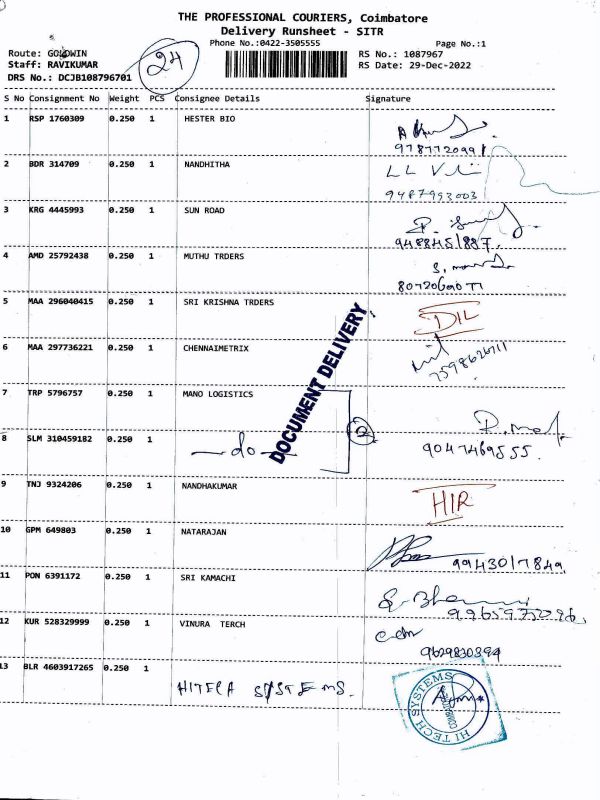 THE PROFESSIONAL COURIERS, Coimbatore
Delivery Runsheet - SITR
Phone No.:0422-3505555 Page No.:1
Route: GOLDWIN RS No.: 1087967
Staff: RAVIKUMAR 24 RS Date: 29-Dec-2022
DRS No.: DCJB108796701
S No Consignment No Weight PCS Consignee Details Signature
1 RSP 1760309 0.250 1 HESTER BIO
9787720991
2 BDR 314709 0.250 1 NANDHITHA
9487993003
3 KRG 4445993 0.250 1 SUN ROAD
9488451887.
4 AMD 25792438 0.250 1 MUTHU TRDERS
8072069077
5 MAA 296040415 0.250 1 SRI KRISHNA TRDERS
D/L
6 MAA 297736221 0.250 1 CHENNAIMETRIX
7598626711
DOCUMENT DELIVERY
7 TRP 5796757 0.250 1 MANO LOGISTICS
2
8 SLM 310459182 0.250 1 —do— 9047469555.
9 TNJ 9324206 0.250 1 NANDHAKUMAR
HIR
10 GPM 649803 0.250 1 NATARAJAN
9943017849
11 PON 6391172 0.250 1 SRI KAMACHI
12 KUR 528329999 0.250 1 VINURA TERCH
9629830394
13 BLR 4603917265 0.250 1
HITECH SYSTEMS.
HI TECH SYSTEMS
COIMBATORE